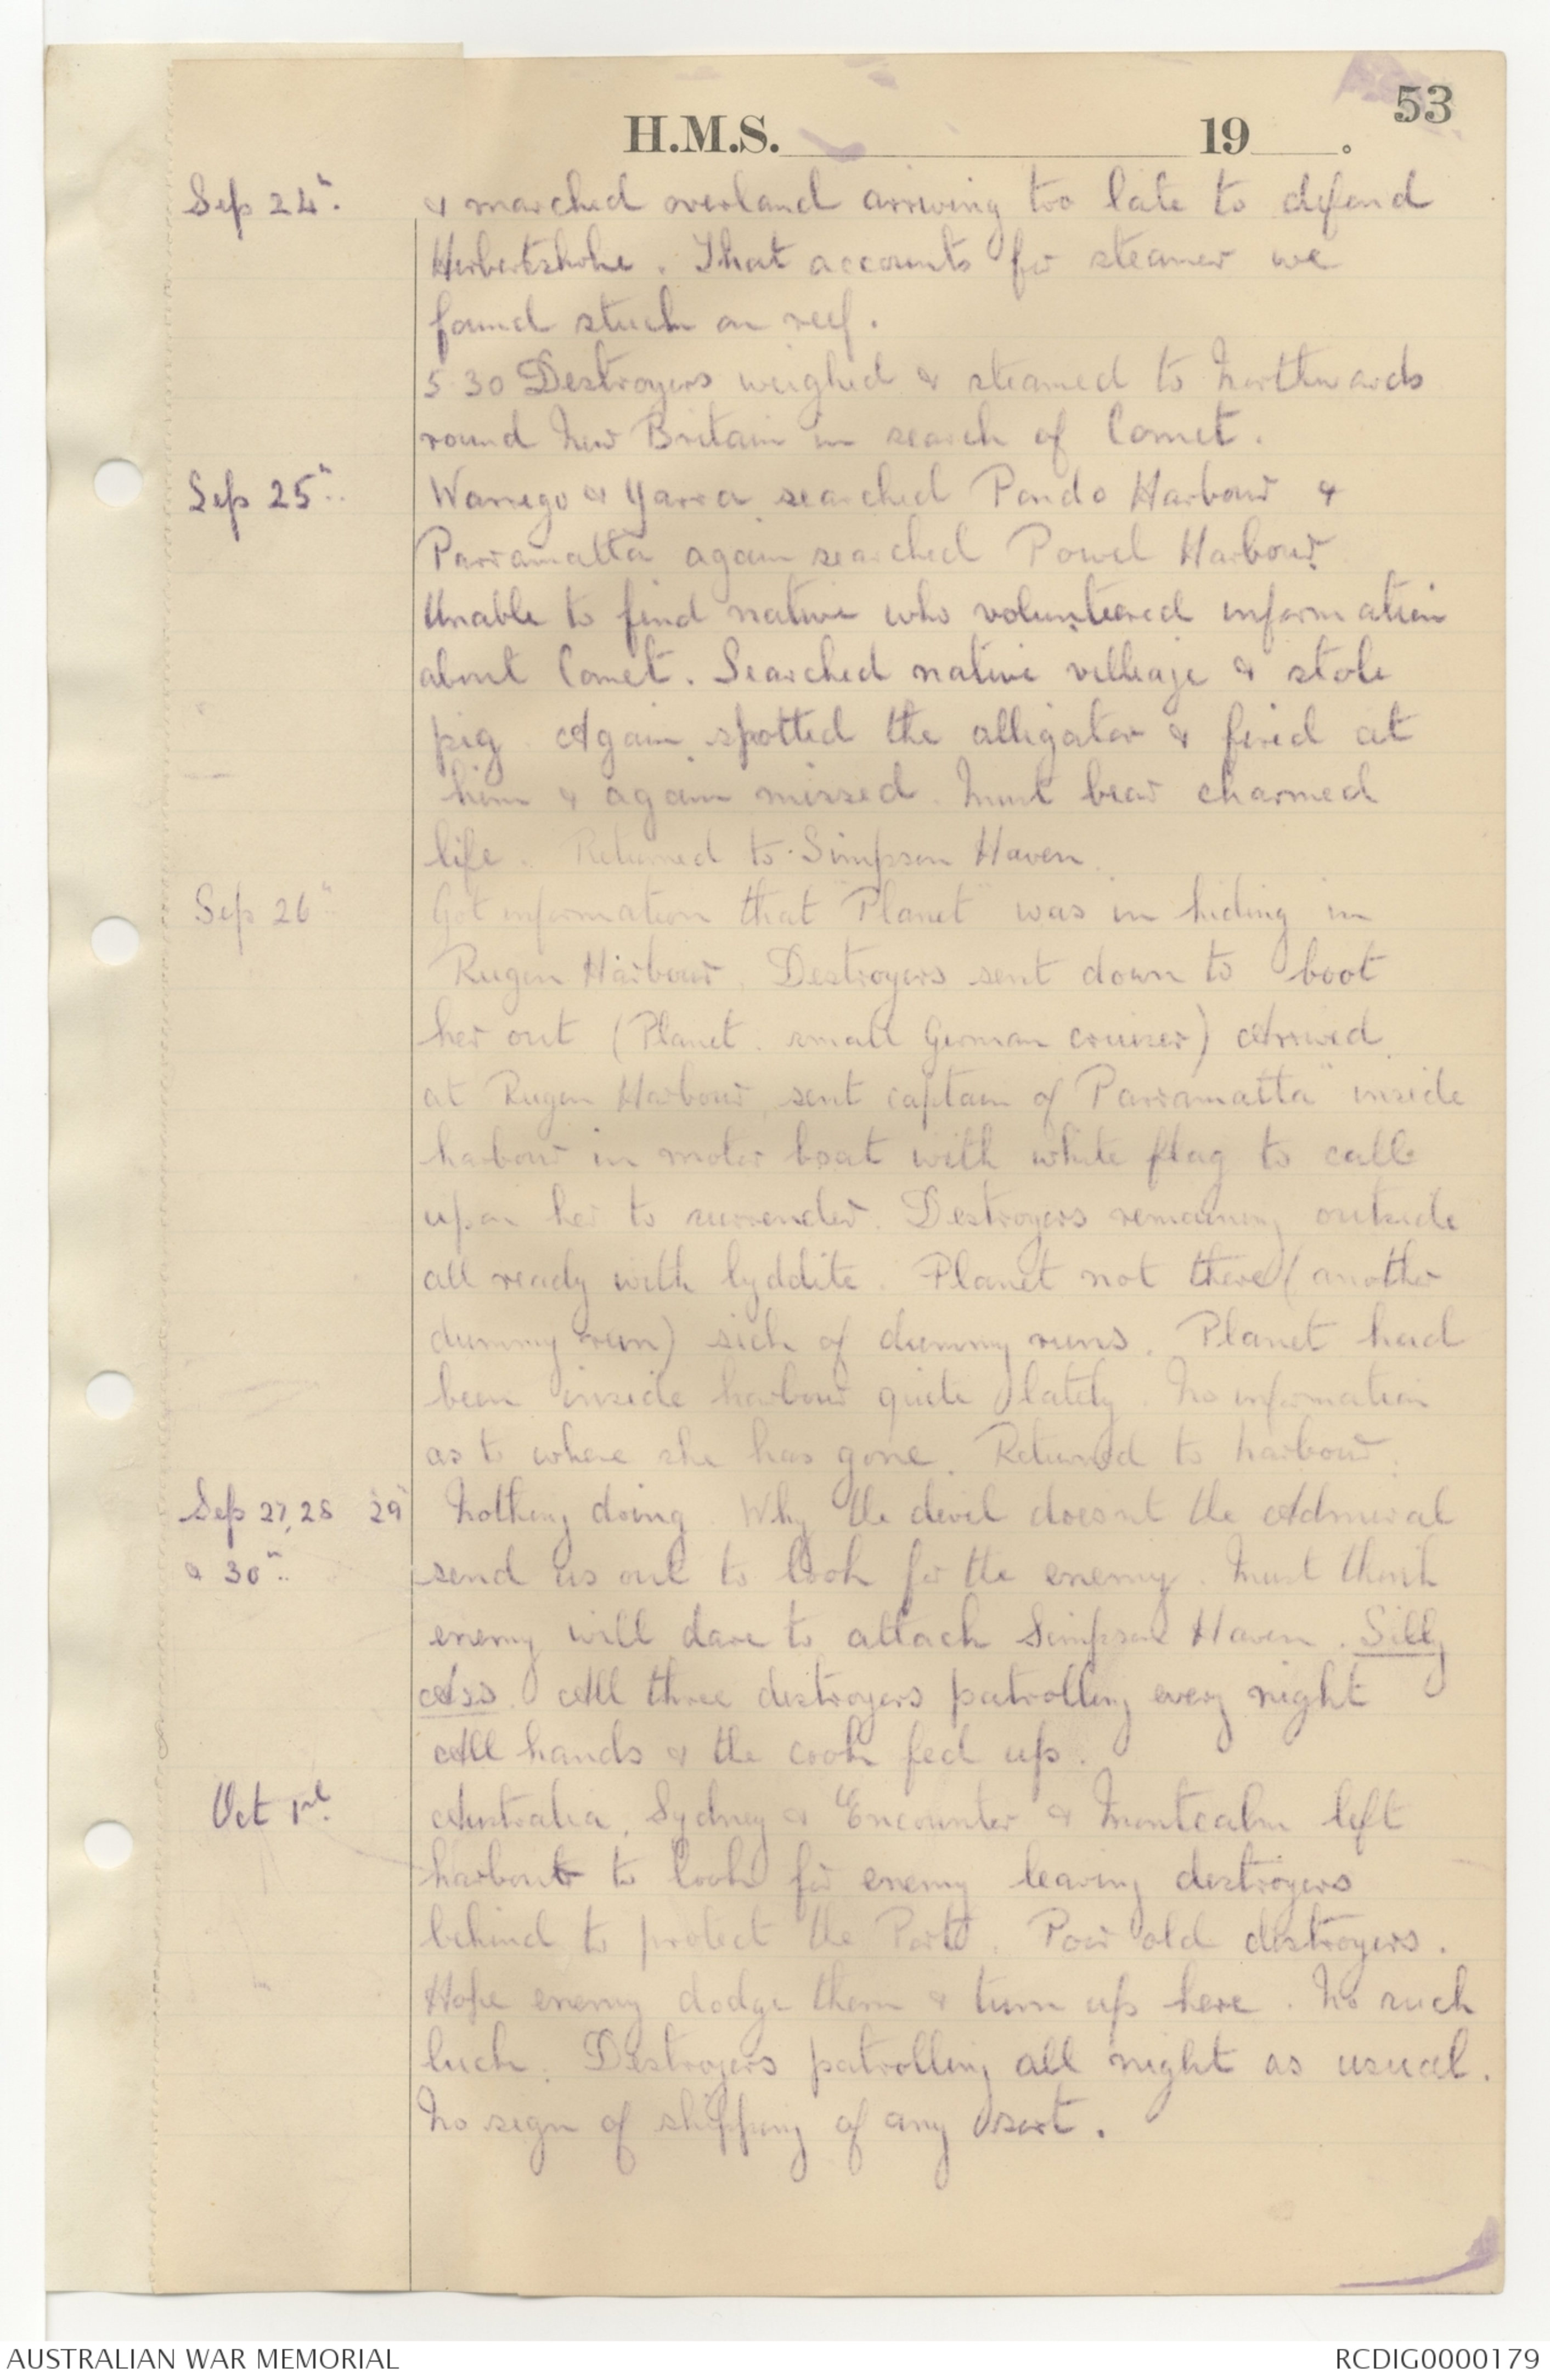 53
H.M.S. 19 .
Sep 24th. & marched overland arriving too late to defend
Herbertshohe. That accounts for steamer we
found stuck on reef.
5.30 Destroyers weighed & steamed to Northwards
round New Britain in search of Comet.
Sep 25th.. Warrego & Yarra searched Pondo Harbour &
Parramatta again searched Powel Harbour.
Unable to find native who volunteered information
about Comet. Searched native village & stole
pig. Again spotted the alligator & fired at
him & again missed. Must bear charmed
life. Returned to Simpson Haven.
Sep 26th.. Got information that "Planet" was in hiding in
Rugen Harbour. Destroyers sent down to boot
her out (Planet. small German cruiser) Arrived
at Rugen Harbour, sent captain of "Parramatta" inside
harbour in motor boat with white flag to call
upon her to surrender. Destroyers remaining outside
all ready with lyddite. Planet not there (another
dummy run) sick of dummy runs. Planet had
been inside harbour quite lately. No information
as to where she has gone. Returned to harbour.
Sep 27, 28 29 Nothing doing. Why the devil doesnt the Admiral
& 30th.. send us out to look for the enemy. Must think
enemy will dare to attack Simpson Haven. Silly
Ass. All three destroyers patrolling every night
All hands & the cook fed up.
Oct 1st. Australia, Sydney & Encounter & Montcalm left
harbour to look for enemy leaving destroyers
behind to protect the Port. Poor old destroyers.
Hope enemy dodge them & turn up here. No such
luck. Destroyers patrolling all night as usual.
No sign of shipping of any sort.
AUSTRALIAN WAR MEMORIAL
RCDIG0000179